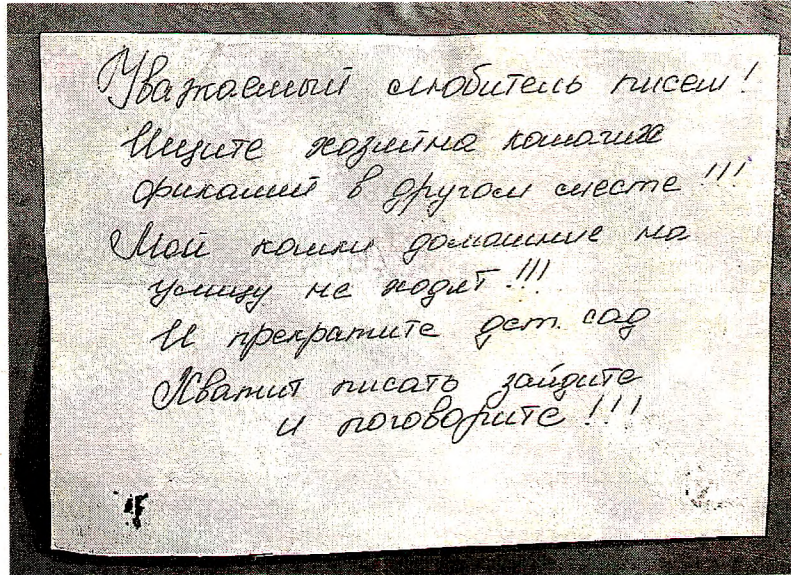 Уважаемый любитель писем!
Ищите хозяина кошачих
фикалий в другом месте!!!
Мои кошки домашние на
улицу не ходят!!!
И прекратите дет. сад
Хватит писать зайдите
и поговорите!!!